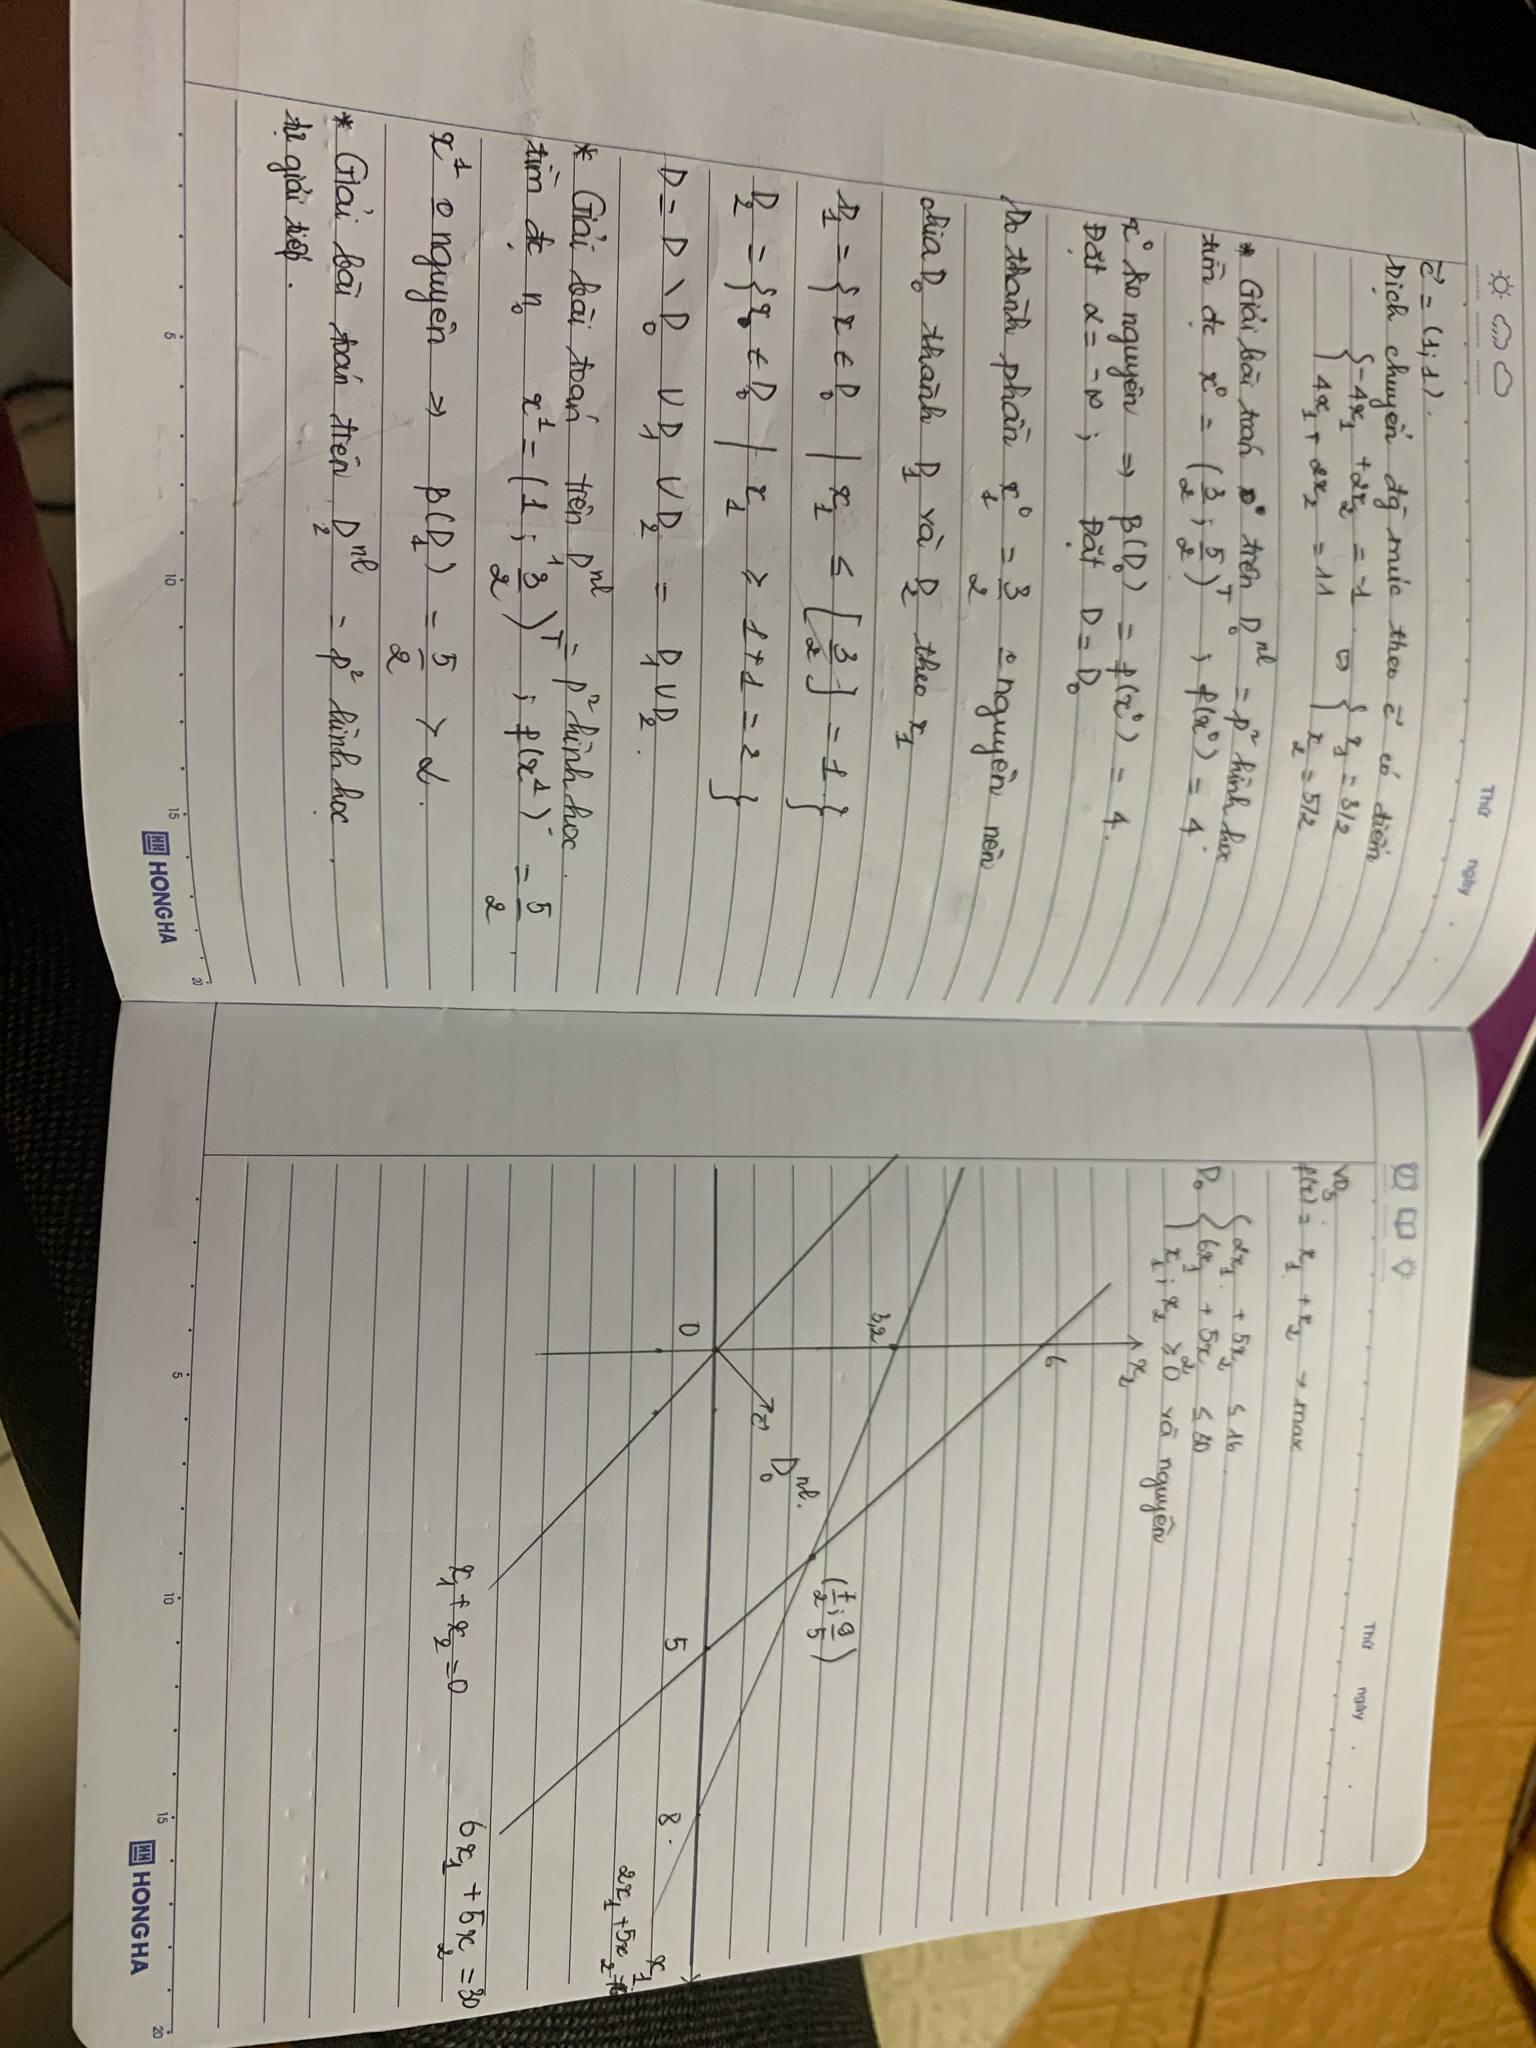 Thứ
ngày
c⃗ = (1; 1).
Dịch chuyển đg mức theo c⃗ có điểm
{ -4x₁ + 2x₂ = -1 ⇔ { x₁ = 3/2
4x₁ + 2x₂ = 11 x₂ = 5/2
* Giải bài toán trên D₀ⁿˡ = p² hình học
tìm đc x⁰ = (3/2; 5/2)ᵀ, f(x⁰) = 4.
x⁰ ko nguyên ⇒ β(D₀) = f(x⁰) = 4.
Đặt α = -∞; Đặt D = D₀
Do thành phần x₁⁰ = 3/2 nguyên nên
chia D₀ thành D₁ và D₂ theo x₁
D₁ = { x ∈ D₀ | x₁ ≤ [3/2] = 1 }
D₂ = { x ∈ D₀ | x₁ ≥ 1+1 = 2 }
D = D \ D₀ ∪ D₁ ∪ D₂ = D₁ ∪ D₂.
* Giải bài toán trên D₁ⁿˡ = p² hình học.
tìm đc x¹ = (1; 3/2)ᵀ; f(x¹) = 5/2.
x¹ nguyên ⇒ β(D₁) = 5/2 > α.
* Giải bài toán trên D₂ⁿˡ = p² hình học.
tự giải tiếp.
5 10 15 20
HONG HA
Thứ
ngày
VD₃
f(x) = x₁ + x₂ → max
{ 2x₁ + 5x₂ ≤ 16
D₀ { 6x₁ + 5x₂ ≤ 30
x₁; x₂ ≥ 0 và nguyên
x₂
6
3,2
(7/2; 9/5)
D₀ⁿˡ.
c⃗
0
5
8
x₁
2x₁ + 5x₂ = 16
x₁ + x₂ = 0
6x₁ + 5x₂ = 30
5 10 15 20
HONG HA